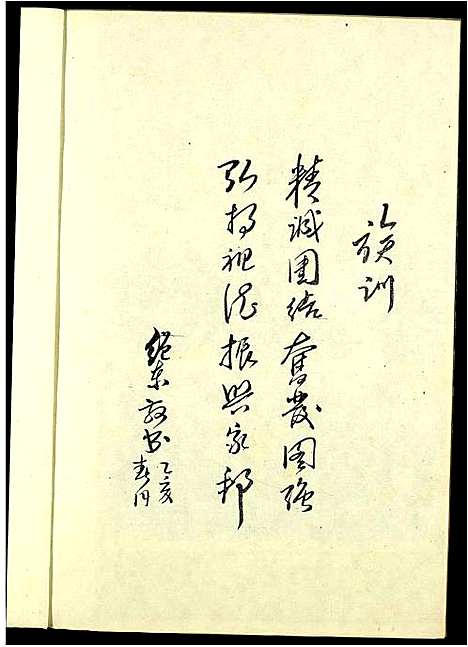 族训
精诚团结奋发图强
弘扬祖德振兴家邦
绍东敬书
乙亥
春月